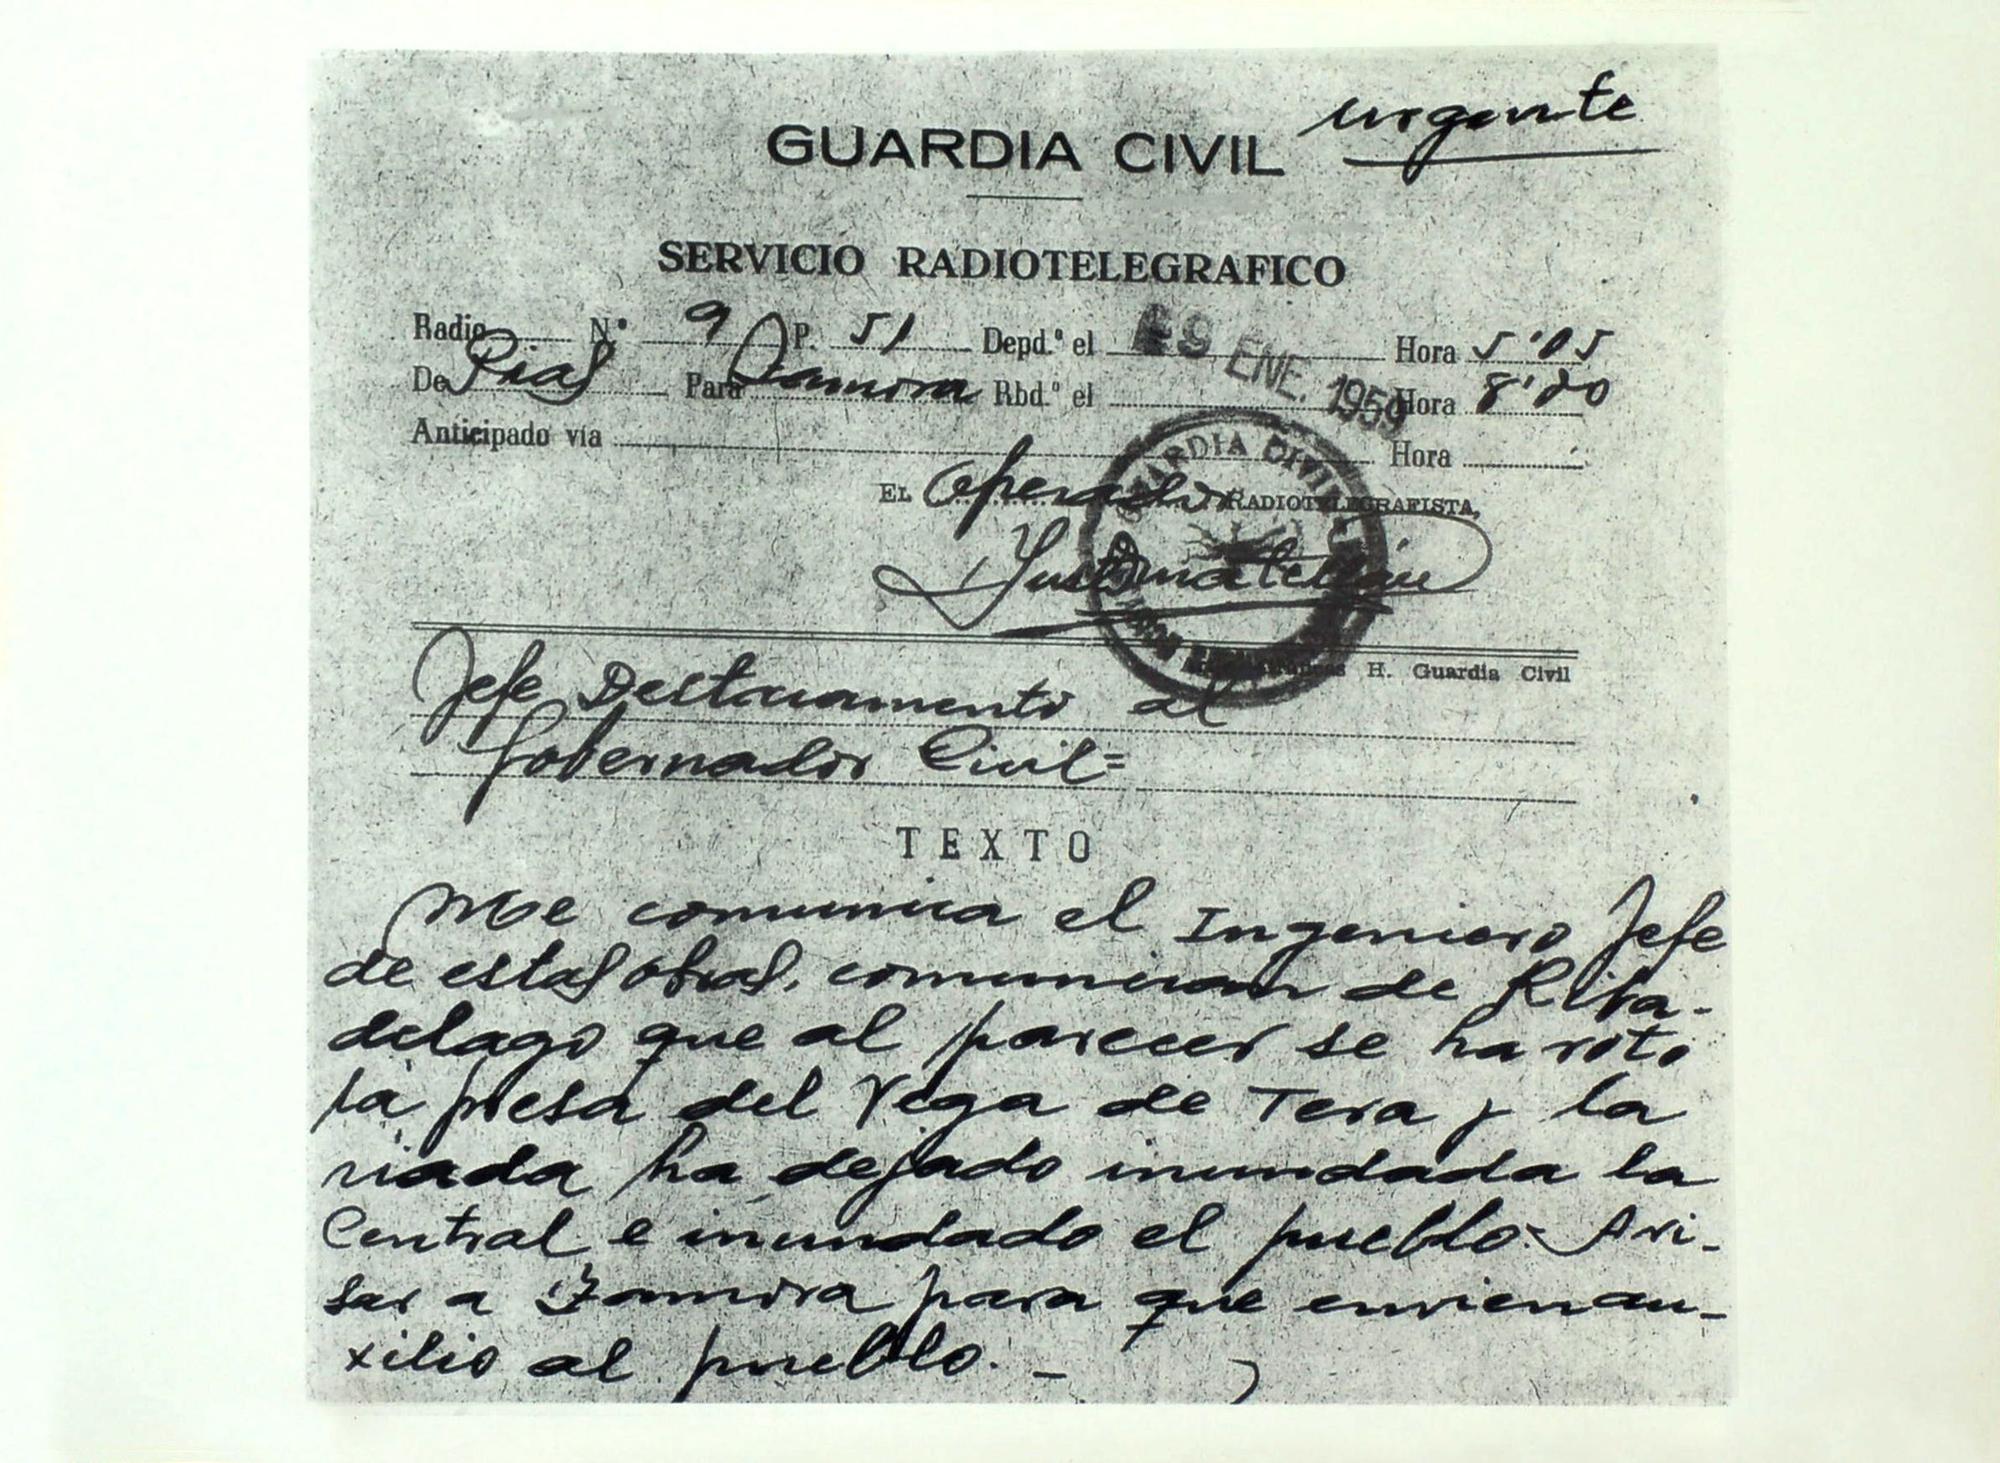 urgente
GUARDIA CIVIL
SERVICIO RADIOTELEGRAFICO
Radio N.º 9 P. 51 Depd.º el 9 ENE. 1959 Hora 5'05
De Pías Para Zamora Rbd.º el Hora 8'20
Anticipado vía Hora
EL Operador RADIOTELEGRAFISTA,
GUARDIA CIVIL
H. Guardia Civil
Jefe Destacamento al
Gobernador Civil=
TEXTO
Me comunica el Ingeniero Jefe
de estas obras, comunican de Riba-
delago que al parecer se ha roto
la presa del Vega de Tera y la
riada ha dejado inundada la
Central e inundado el pueblo.- Avi-
sar a Zamora para que envien au-
xilio al pueblo. -